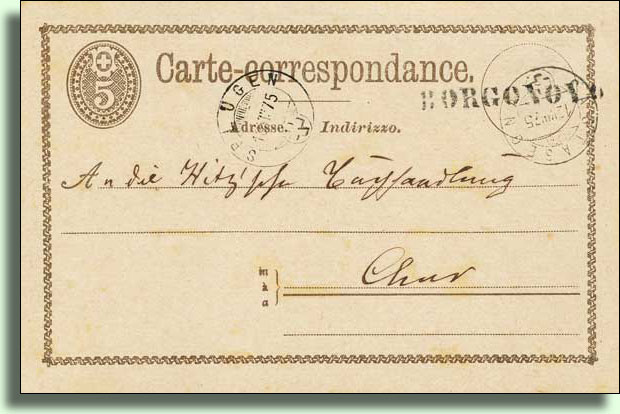 5
Carte-correspondance.
BORGONOVO
SPLUGEN
75
Adresse. Indirizzo.
An die Hitz'sche Buchhandlung
in
à
a
Chur